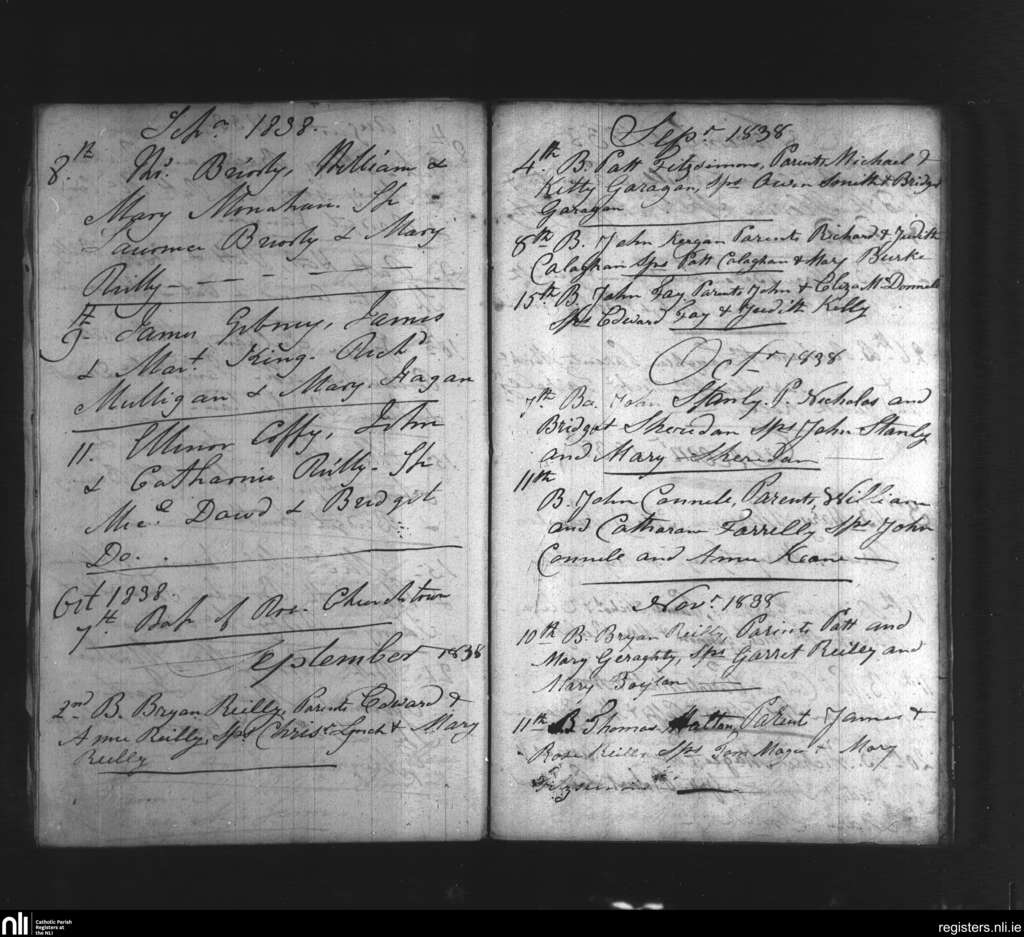 Sepr 1838.
8.th Ths. Brierly, William &
Mary Monahan. Sp
Laurence Brierly & Mary
Reilly
9th James Gibney, James
& Mart. King. Richd
Mulligan & Mary Fagan
11. Ellinor Coffy, John
& Catharine Reilly. Sp
Micl Dowd & Bridget
Do.
Oct 1838.
7th. Bap of Churchtown
September 1838
2nd B. Bryan Reilly, Parents Edward &
Anne Reilly, Sps Chrisr Lynch & Mary
Reilly
Sepr 1838
4th B. Patt Fitzsimons, Parents Michael &
Kitty Garagan, Sps Owen Smith & Bridget
Garagan
8th B. John Kergan Parents Richard & Judith
Calaghan Sps Patt Calaghan & Mary Burke
15th B. John Fay Parents John & Eliza McDonnell
Sps Edward Fay & Judith Kelly
Octr 1838
7th Ba. John Stanly. P. Nicholas and
Bridget Sheridan Sps John Stanly
and Mary Sheridan
11th
B. John Connele, Parents, William
and Catharan Farrelly Sps John
Connele and Anne Keane
Novr 1838
10th B. Bryan Reilly, Parints Patt and
Mary Geraghty, Sps Garret Reilly and
Mary Foylan
11th B Thomas Hattan, Parent James &
Rose Reilly Sps Tom Mager & Mary
Fitzsimons
nli
Catholic Parish
Registers at
the NLI
registers.nli.ie